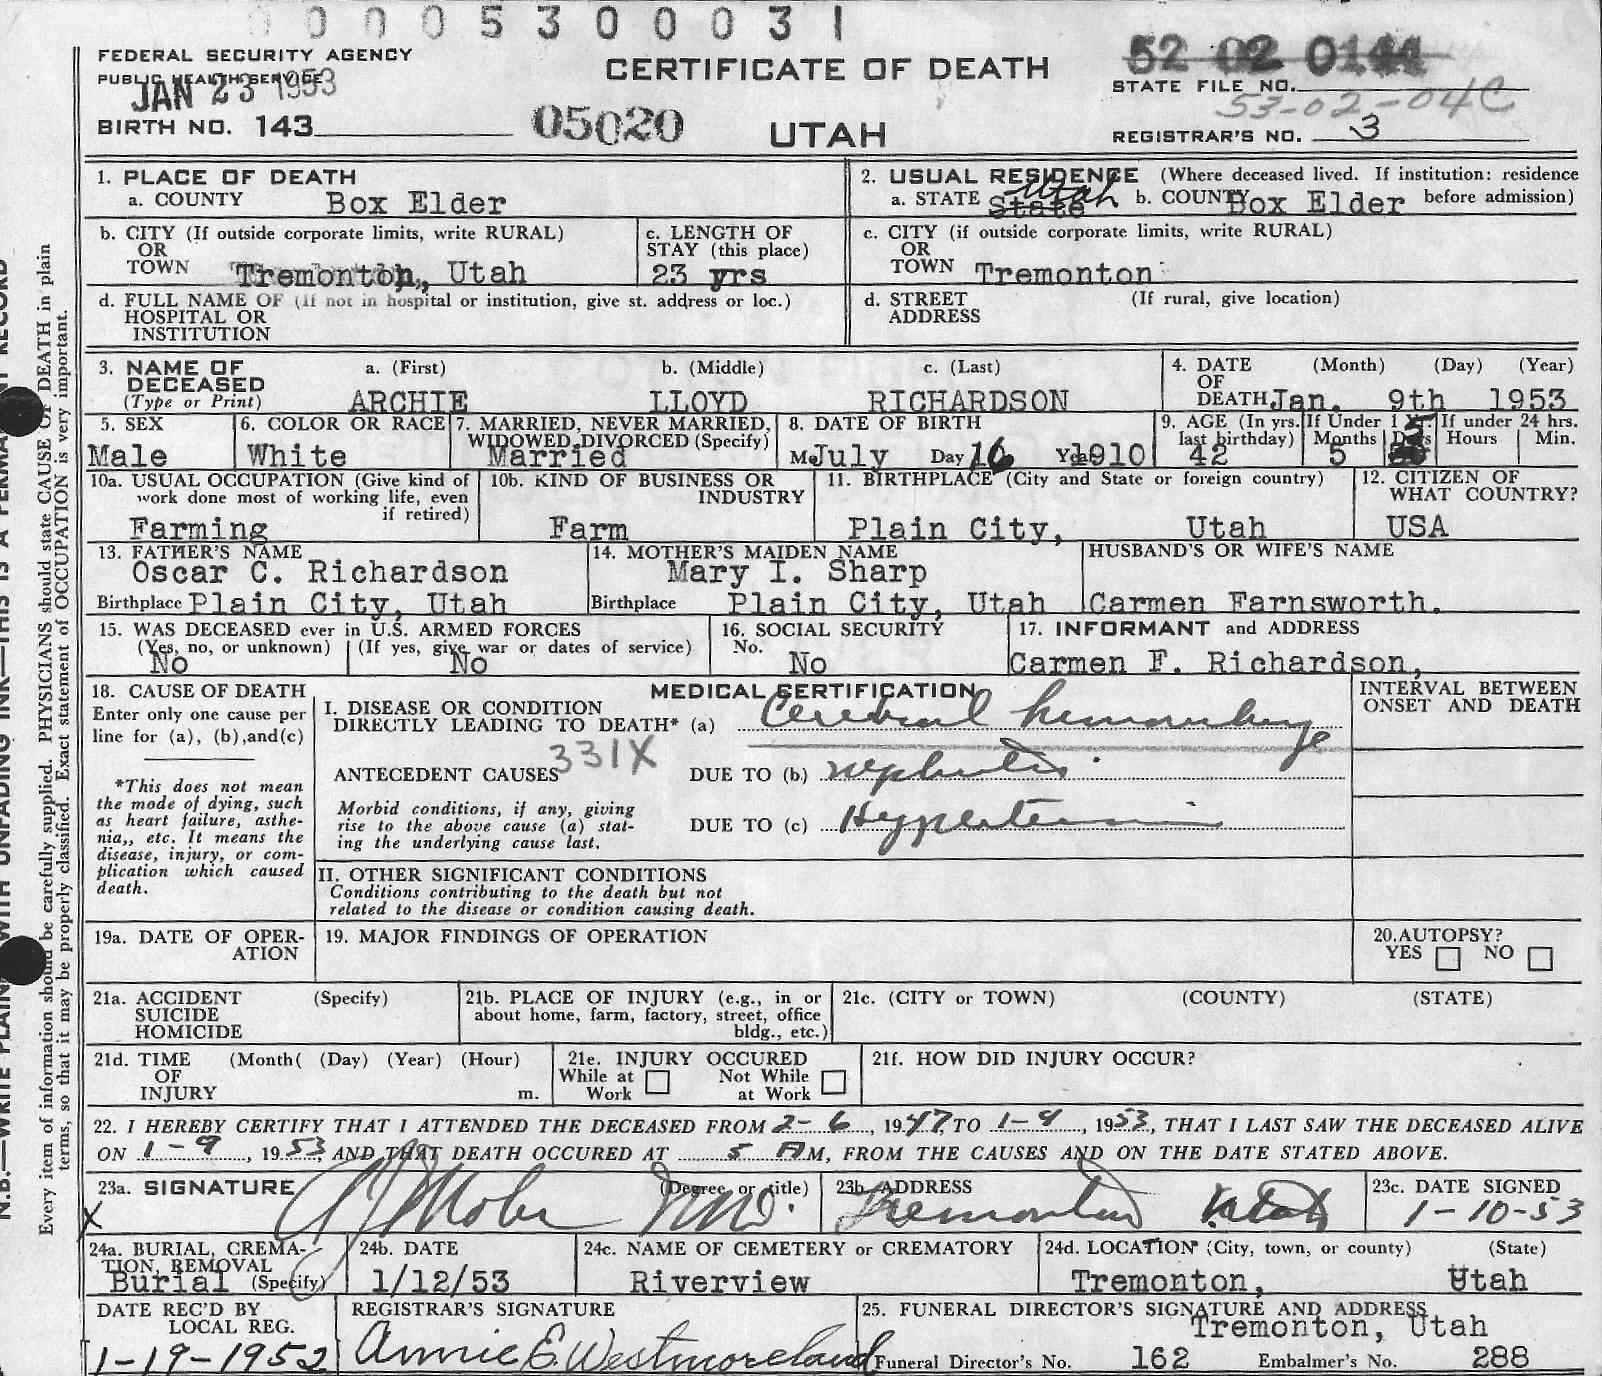 0 0 0 5 3 0 0 0 3 1
FEDERAL SECURITY AGENCY
PUBLIC HEALTH SERVICE
JAN 23 1953
BIRTH NO. 143
05020
CERTIFICATE OF DEATH
UTAH
52 02 0144
STATE FILE NO.
53-02-04C
REGISTRAR'S NO. 3
1. PLACE OF DEATH
a. COUNTY Box Elder
2. USUAL RESIDENCE (Where deceased lived. If institution: residence
a. STATE State Utah b. COUNTY Box Elder before admission)
b. CITY (If outside corporate limits, write RURAL)
OR
TOWN Tremonton, Utah
c. LENGTH OF
STAY (this place)
23 yrs
c. CITY (if outside corporate limits, write RURAL)
OR
TOWN Tremonton
d. FULL NAME OF (If not in hospital or institution, give st. address or loc.)
HOSPITAL OR
INSTITUTION
d. STREET (If rural, give location)
ADDRESS
3. NAME OF
DECEASED
(Type or Print)
a. (First) b. (Middle) c. (Last)
ARCHIE LLOYD RICHARDSON
4. DATE (Month) (Day) (Year)
OF
DEATH Jan. 9th 1953
5. SEX
Male
6. COLOR OR RACE
White
7. MARRIED, NEVER MARRIED,
WIDOWED, DIVORCED (Specify)
Married
8. DATE OF BIRTH
July Day 16 1910
9. AGE (In yrs.
last birthday)
42
If Under 1 Yr.
Months Days
5
If under 24 hrs.
Hours Min.
10a. USUAL OCCUPATION (Give kind of
work done most of working life, even
if retired)
Farming
10b. KIND OF BUSINESS OR
INDUSTRY
Farm
11. BIRTHPLACE (City and State or foreign country)
Plain City, Utah
12. CITIZEN OF
WHAT COUNTRY?
USA
13. FATHER'S NAME
Oscar C. Richardson
Birthplace Plain City, Utah
14. MOTHER'S MAIDEN NAME
Mary I. Sharp
Birthplace Plain City, Utah
HUSBAND'S OR WIFE'S NAME
Carmen Farnsworth.
15. WAS DECEASED ever in U.S. ARMED FORCES
(Yes, no, or unknown) (If yes, give war or dates of service)
No No
16. SOCIAL SECURITY
No.
No
17. INFORMANT and ADDRESS
Carmen F. Richardson,
18. CAUSE OF DEATH
Enter only one cause per
line for (a), (b),and(c)
*This does not mean
the mode of dying, such
as heart failure, asthe-
nia,, etc. It means the
disease, injury, or com-
plication which caused
death.
MEDICAL CERTIFICATION
I. DISEASE OR CONDITION
DIRECTLY LEADING TO DEATH* (a) Cerebral hemorrhage
331X
ANTECEDENT CAUSES DUE TO (b) nephritis
Morbid conditions, if any, giving
rise to the above cause (a) stat-
ing the underlying cause last.
DUE TO (c) Hypertension
INTERVAL BETWEEN
ONSET AND DEATH
II. OTHER SIGNIFICANT CONDITIONS
Conditions contributing to the death but not
related to the disease or condition causing death.
19a. DATE OF OPER-
ATION
19. MAJOR FINDINGS OF OPERATION
20. AUTOPSY?
YES NO
21a. ACCIDENT (Specify)
SUICIDE
HOMICIDE
21b. PLACE OF INJURY (e.g., in or
about home, farm, factory, street, office
bldg., etc.)
21c. (CITY or TOWN) (COUNTY) (STATE)
21d. TIME (Month( (Day) (Year) (Hour)
OF
INJURY m.
21e. INJURY OCCURED
While at Not While
Work at Work
21f. HOW DID INJURY OCCUR?
22. I HEREBY CERTIFY THAT I ATTENDED THE DECEASED FROM 2-6, 1947, TO 1-9, 1953, THAT I LAST SAW THE DECEASED ALIVE
ON 1-9, 1953, AND THAT DEATH OCCURED AT 5 AM, FROM THE CAUSES AND ON THE DATE STATED ABOVE.
23a. SIGNATURE (Degree or title)
X M.D.
23b. ADDRESS
Tremonton Utah
23c. DATE SIGNED
1-10-53
24a. BURIAL, CREMA-
TION, REMOVAL
Burial (Specify)
24b. DATE
1/12/53
24c. NAME OF CEMETERY or CREMATORY
Riverview
24d. LOCATION (City, town, or county) (State)
Tremonton, Utah
DATE REC'D BY
LOCAL REG.
1-19-1952
REGISTRAR'S SIGNATURE
Annie E. Westmoreland
25. FUNERAL DIRECTOR'S SIGNATURE AND ADDRESS
Tremonton, Utah
Funeral Director's No. 162 Embalmer's No. 288
N.B.—WRITE PLAINLY WITH UNFADING INK—THIS IS A PERMANENT RECORD
Every item of information should be carefully supplied. PHYSICIANS should state CAUSE OF DEATH in plain
terms, so that it may be properly classified. Exact statement of OCCUPATION is very important.